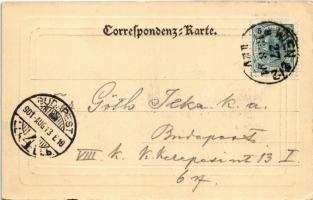 Correspondenz-Karte.
WIEN
BUDAPEST
901 AUG 13
Göth Ilka k. a.
Budapest
VIII k. Kerepesi út 13 I
6